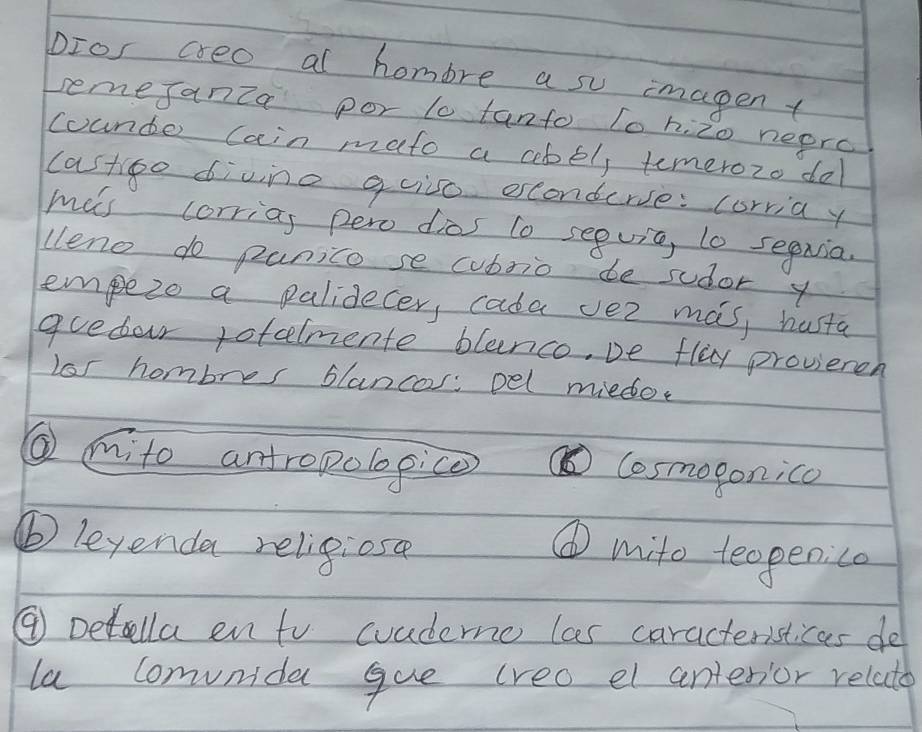 DIOS creo al hombre a su imagen y
semejanza por lo tanto lo hizo negro.
cuando Cain mato a abel, temerozo del
castigo divino quiso esconderse: corria y
más corrias pero dios lo seguia, lo seguia.
lleno de panico se cubrio de sudor y
empezo a palidecer, cada vez más, hasta
quedar totalmente blanco. De provieren
los hombres blancos: Del miedo.
ⓐ mito antropologico ⓒ Cosmogonico
ⓑ leyenda religiosa ⓓ mito teogenico
⑨ Detalla en tu cuaderno las caracteristicas de
la comunida que creo el anterior relato